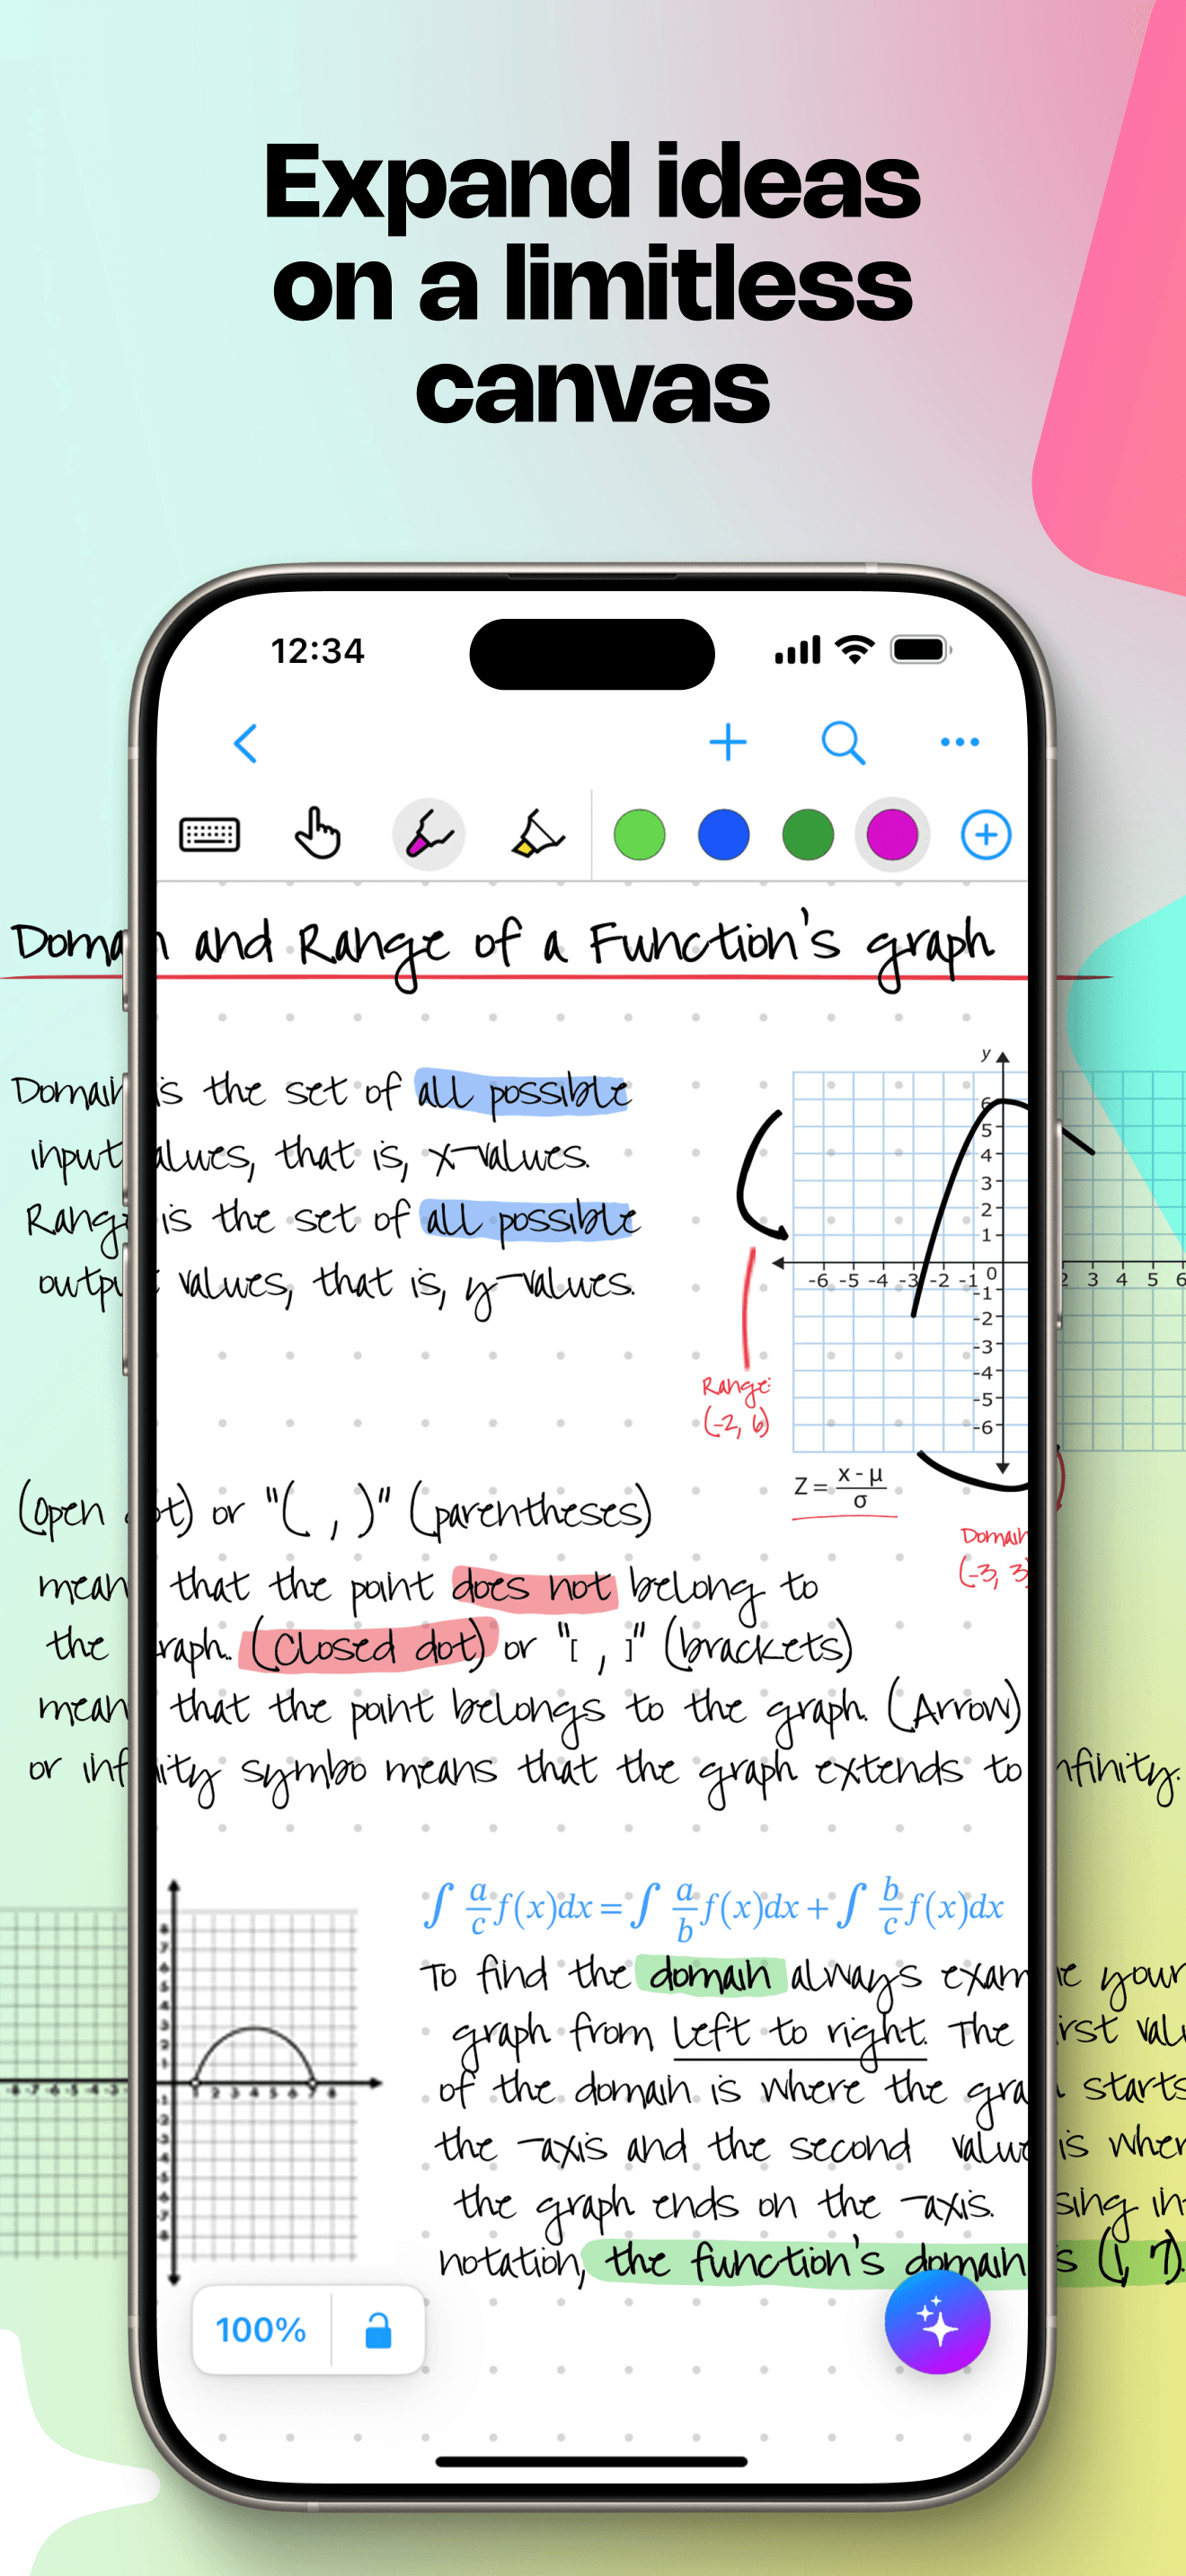 Expand ideas
on a limitless
canvas
12:34
Domain and Range of a Function's graph
Domain is the set of all possible
input values, that is, x-values.
Range is the set of all possible
output values, that is, y-values.
y
6
5
4
3
2
1
-6 -5 -4 -3 -2 -1 0 2 3 4 5 6
-1
-2
-3
-4
-5
-6
Range:
(-2, 6)
Z = x - μ / σ
Domain
(-3, 3
(open dot) or "( , )" (parentheses)
mean that the point does not belong to
the graph. (Closed dot) or "[ , ]" (brackets)
mean that the point belongs to the graph. (Arrow)
or infinity symbo means that the graph extends to infinity.
∫ a/c f(x)dx = ∫ a/b f(x)dx + ∫ b/c f(x)dx
To find the domain always examine your
graph from left to right. The first valu
of the domain is where the graph starts
the -axis and the second value is wher
the graph ends on the -axis. sing in
notation, the function's domain is (1, 7).
-8 -7 -6 -5 -4 -3 2 3 4 5 6 7 8
100%